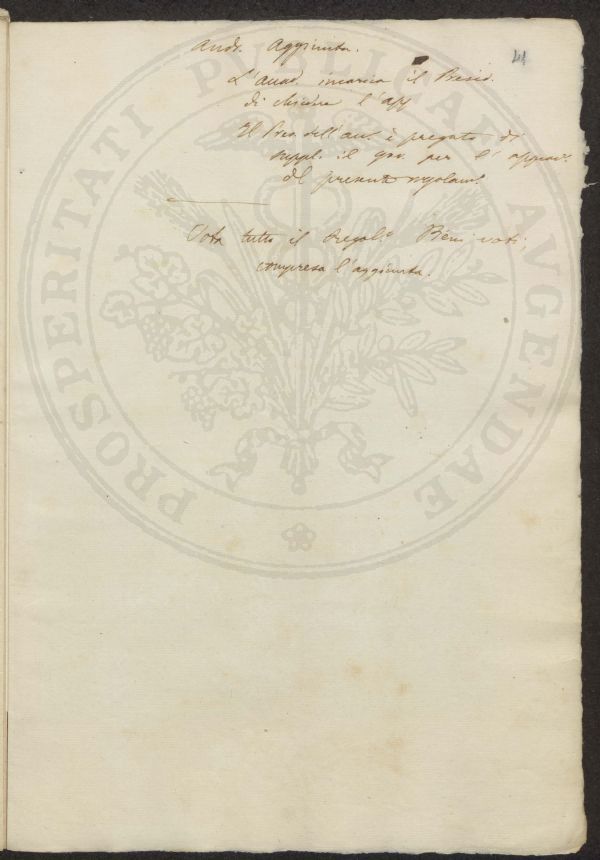 41
Aggiunta.
L'Accad. incarica il Presid.
di chiedere l'app
Il Pres. dell'Acc. è pregato di
suppl. il gov. per l'approv.
del presente regolam.
tutto il Regol.
compresa l'aggiunta.
PROSPERITATI PUBLICAE AUGENDAE